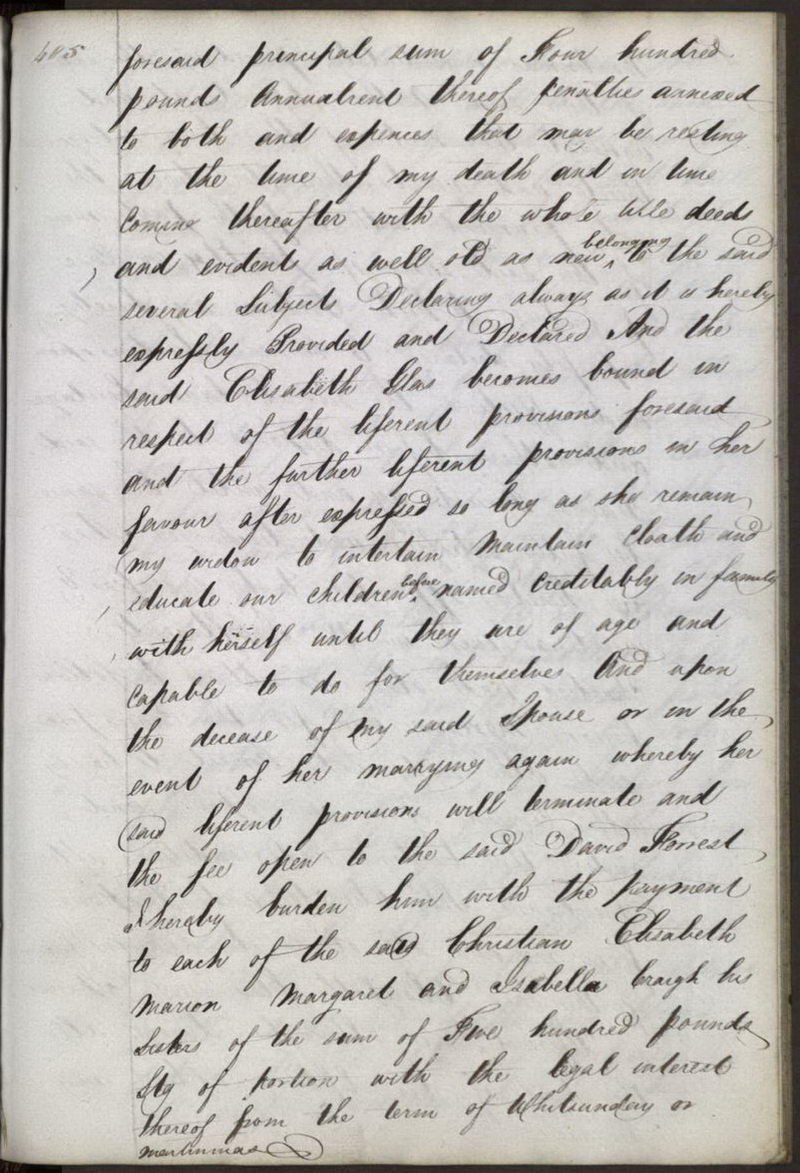 405
foresaid principal sum of Four hundred
pounds Annualrent thereof penalties annexed
to both and expences that may be resting
at the time of my death and in time
coming thereafter with the whole title deeds
and evident as well old as new belonging to the said
several Subject Declaring always as it is hereby
expressly Provided and Declared And the
said Elisabeth Glas becomes bound in
respect of the liferent provisions foresaid
and the further liferent provisions in her
favour after expressed so long as she remain
my widow to intertain maintain cloath and
educate our children before named creditably in family
with herself until they are of age and
capable to do for themselves And upon
the decease of my said Spouse or in the
event of her marrying again whereby her
said liferent provisions will terminate and
the fee open to the said David Forrest
I hereby burden him with the payment
to each of the said Christian Elisabeth
Marion Margaret and Isabella Craigh his
Sisters of the sum of Five hundred pounds
Stg of portion with the legal interest
thereof from the term of Whitsunday or
martinmas